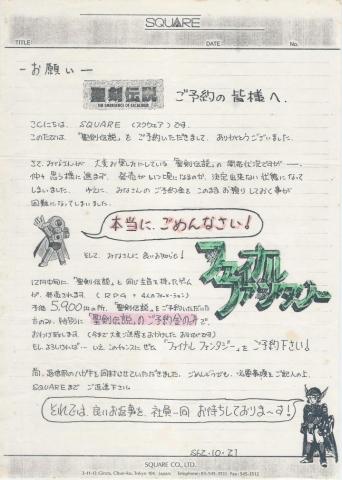 SQUARE
TITLE: DATE No.
－お願い－
聖剣伝説 ご予約の皆様へ.
THE EMERGENCE OF EXCALIBUR
こんにちは、SQUARE (スクウェア)です。
このたびは、『聖剣伝説』をご予約いただきまして、ありがとうございました。
さて、みなさんが大変お楽しみにしている『聖剣伝説』の開発状況ですが……、
仲々思う様に進まず、発売がいつ頃になるのか、決定出来ない状態になって
しまいました。 ゆえに、みなさんのご予約金をこのままお預りしておく事が
困難になてしまいました。
本当に、ごめんなさい!
そして、みなさんに良いお知らせ!
ファイナルファンタジー
12月中旬に、『聖剣伝説』と同じ主旨を持ったゲーム
が、発売されます (RPG
予価 5,900円の所、『聖剣伝説』をご予約いただいた
方のみ、特別に『聖剣伝説』のご予約金のみで、
おわけ致します。
もしよろしければ…… いえ、このチャンスにぜひ『ファイナルファンタジー』をご予約下さい!
尚、返信用のハガキを同封させていただきました。ごめんどうでも、必要事項をご記入の上、
SQUAREまでご返送下さい。
それでは、良いお返事を、社員一同お待ちしておりま〜す!
S62.10.21
SQUARE CO., LTD.
3-11-13 Ginza, Chuo-ku, Tokyo 104, Japan.